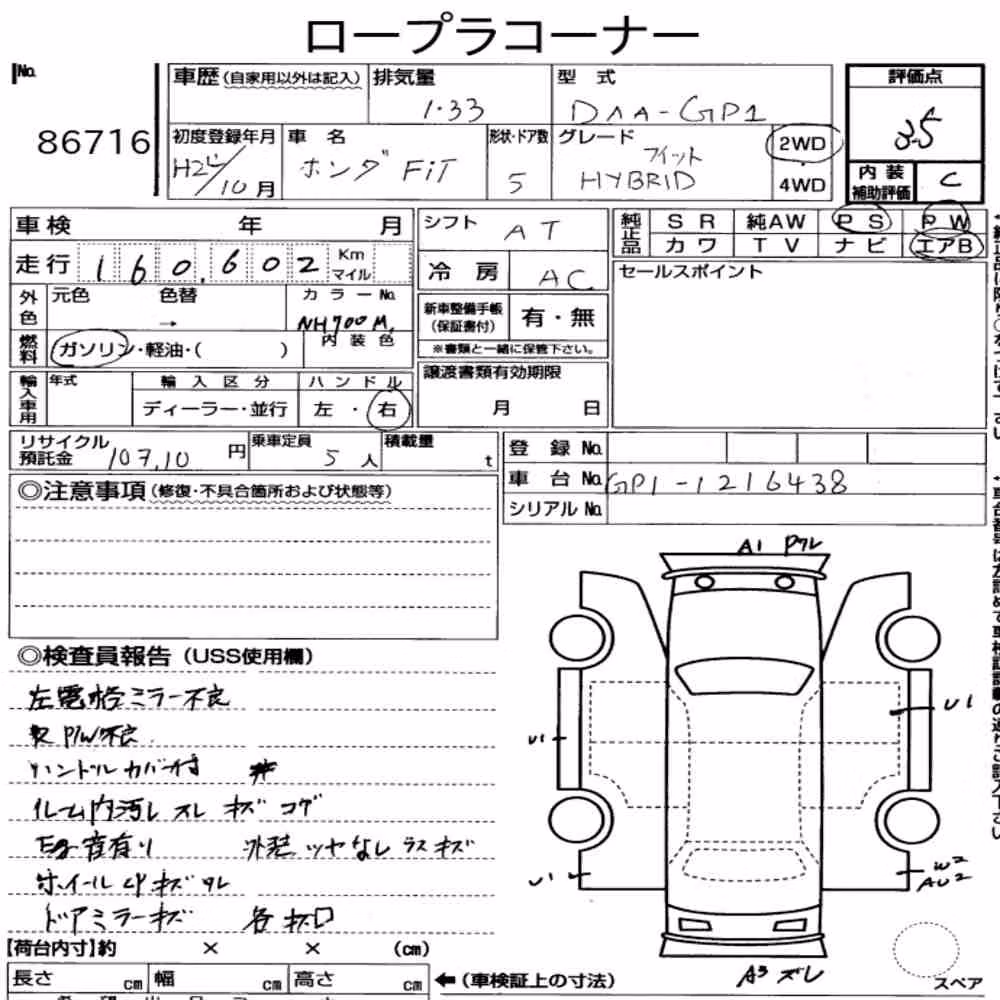 ロープラコーナー
No.
86716
車歴(自家用以外は記入)
排気量
1.33
型 式
DAA-GP1
評価点
3.5
初度登録年月
H24/10月
車 名
ホンダ FiT
形状・ドア数
5
グレード
フィット
HYBRID
2WD
4WD
内装
補助評価
C
車検 年 月
走行 160.602 Km マイル
シフト
AT
冷房
AC
純正品
SR 純AW PS PW
カワ TV ナビ エアB
セールスポイント
外色
元色 色替 →
カラーNo.
NH700M
内装色
燃料
ガソリン・軽油・( )
新車整備手帳
(保証書付)
有・無
※書類と一緒に保管下さい。
輸入車用
年式
輸入区分
ディーラー・並行
ハンドル
左・右
譲渡書類有効期限
月 日
リサイクル
預託金 107,10 円
乗車定員
5 人
積載量
t
登録No.
車台No. GP1-1216438
シリアルNo.
◎注意事項(修復・不具合箇所および状態等)
◎検査員報告(USS使用欄)
左電格ミラー不良
P/W不良
ハンドルカバー付
ルーム内汚レ スレ キズ コゲ
Eg音有リ 外装ツヤなし ラスキズ
ホイールCPキズ ワレ
ドアミラーキズ 各キズ凹
A1 ワレ
U1
U1
U1
W2
AU2
A3 ズレ
スペア
【荷台内寸】約 × × (cm)
長さ cm 幅 cm 高さ cm
←(車検証上の寸法)